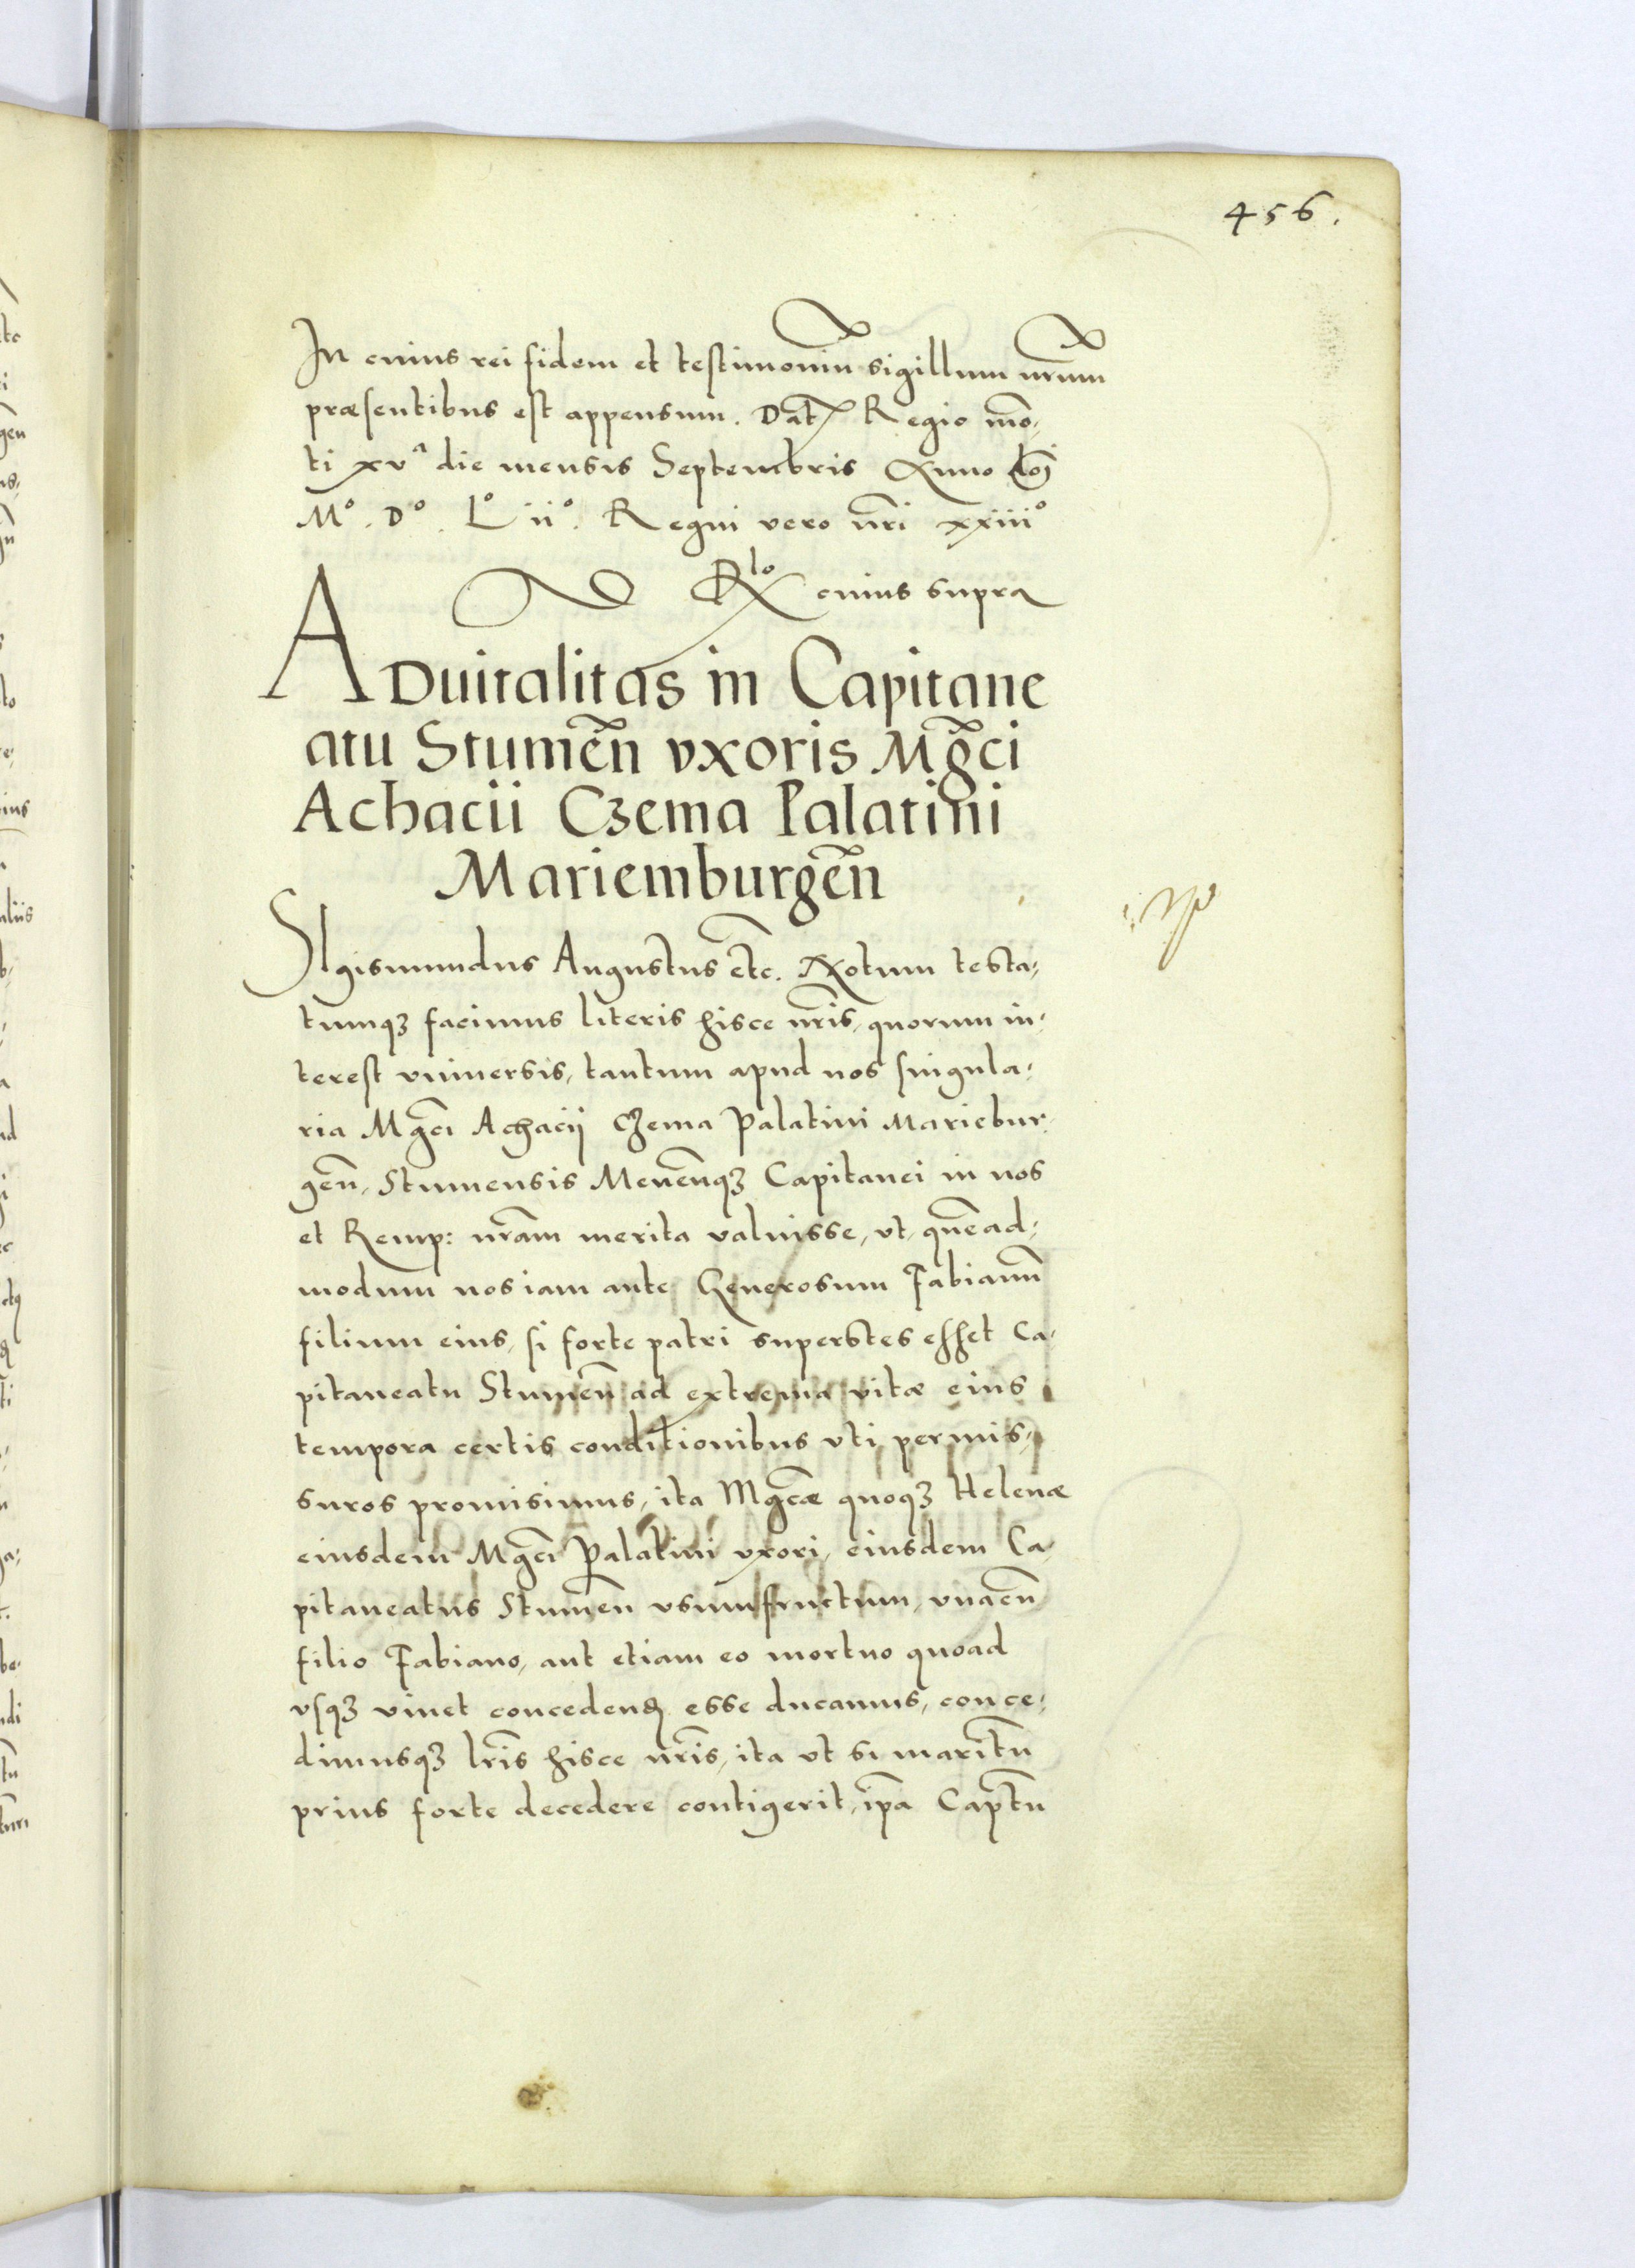 456.
In cuius rei fidem et testimoniũ sigillum nrũm
præsentibus est appensum. Dat̃ Regio mõ,
ti xvª die mensis Septembris Anno dõi
Mº. Dº. Lº iiº. Regni vero nr̃i xxiiiº
Rlº cuius supra
ADuitalitas in Capitane
atu Stumeñ vxoris Mg̃ci
Achacii Czema Palatini
Mariemburgeñ
SIgismundus Augustus etc̃. Notum testa,
tumqꝫ facimus literis hisce nr̃is, quorum in,
terest vniuersis, tantum apud nos singula,
ria Mg̃ci Achacij Czema Palatini Mariebur,
geñ, Stumensis Meueñqꝫ Capitanei in nos
et Remp: nr̃am merita valuisse, vt, quẽad,
modum nos iam ante Generosum Fabianũ
filium eius, si forte patri superstes esset Ca,
pitaneatu Stumeñ ad extrema vitæ eius
tempora certis conditionibus vti permis,
suros promisimus, ita Mg̃cæ quoqꝫ Helenæ
eiusdem Mg̃ci Palatini vxori, eiusdem Ca,
pitaneatus Stumeñ vsumfructum, vnacũ
filio Fabiano, aut etiam eo mortuo quoad
vsqꝫ viuet concedendꝫ esse ducamus, conce,
dimusqꝫ lr̃is hisce nr̃is, ita vt si maritũ
prius forte decedere contigerit, ip̃a Capt̃ũ